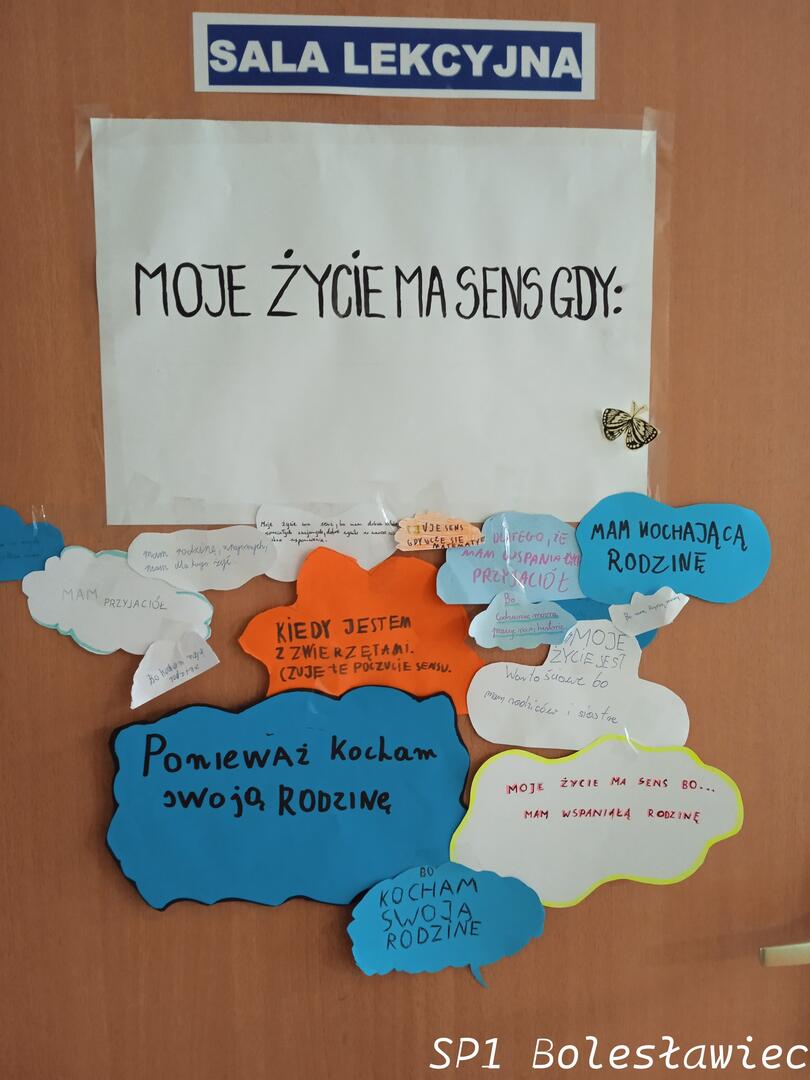 SALA LEKCYJNA
MOJE ŻYCIE MA SENS GDY:
Moje życie ma sens, bo mam dobre
CZUJE SENS
GDY UCZE SIE
MATEMATYKI
DLATEGO, ŻE
MAM WSPANIAŁYCH
PRZYJACIÓŁ
MAM KOCHAJĄCĄ
RODZINĘ
mam rodzinę, znajomych,
mam dla kogo żyć
MAM PRZYJACIÓŁ
Bo
Codziennie można
Bo kocham moją
rodzinę
KIEDY JESTEM
Z ZWIERZĘTAMI.
CZUJĘ TE POCZUCIE SENSU.
#MOJE
ŻYCIE JEST
Wartościowe bo
mam rodziców i siostrę
PONIEWAŻ Kocham
swoją RODZINĘ
MOJE ŻYCIE MA SENS BO...
MAM WSPANIAŁĄ RODZINĘ
BO
KOCHAM
SWOJĄ
RODZINE
SP1 Bolesławiec